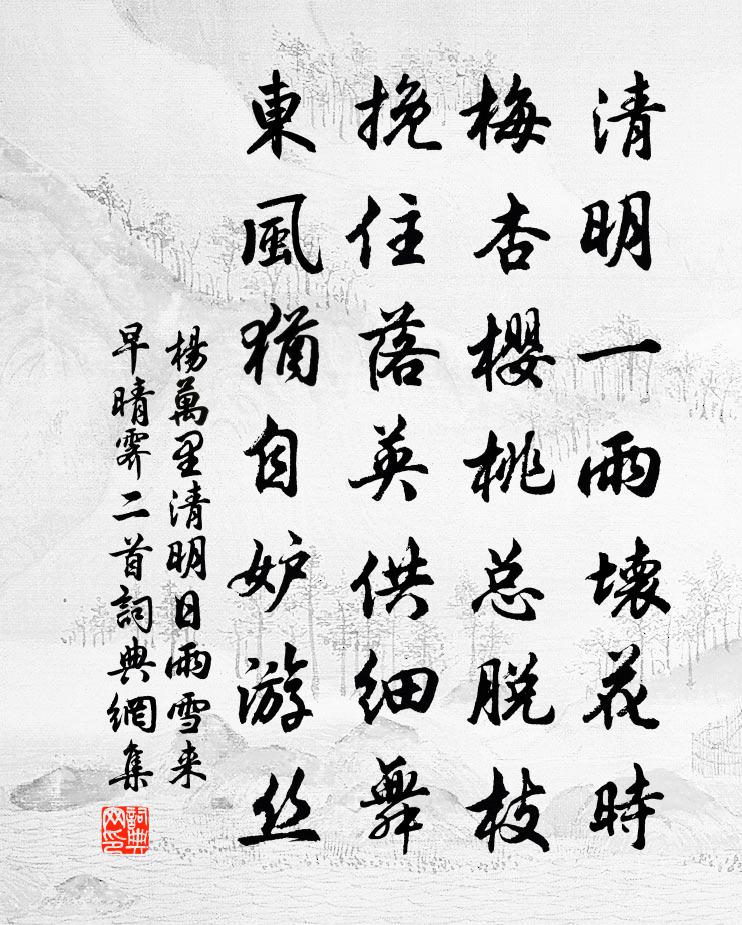 清明一雨壊花時
梅杏櫻桃总脱枝
挽住落英供细舞
東風猶自妒游丝
楊萬里清明日雨雪来
早晴霽二首詞典網集
詞典
网印